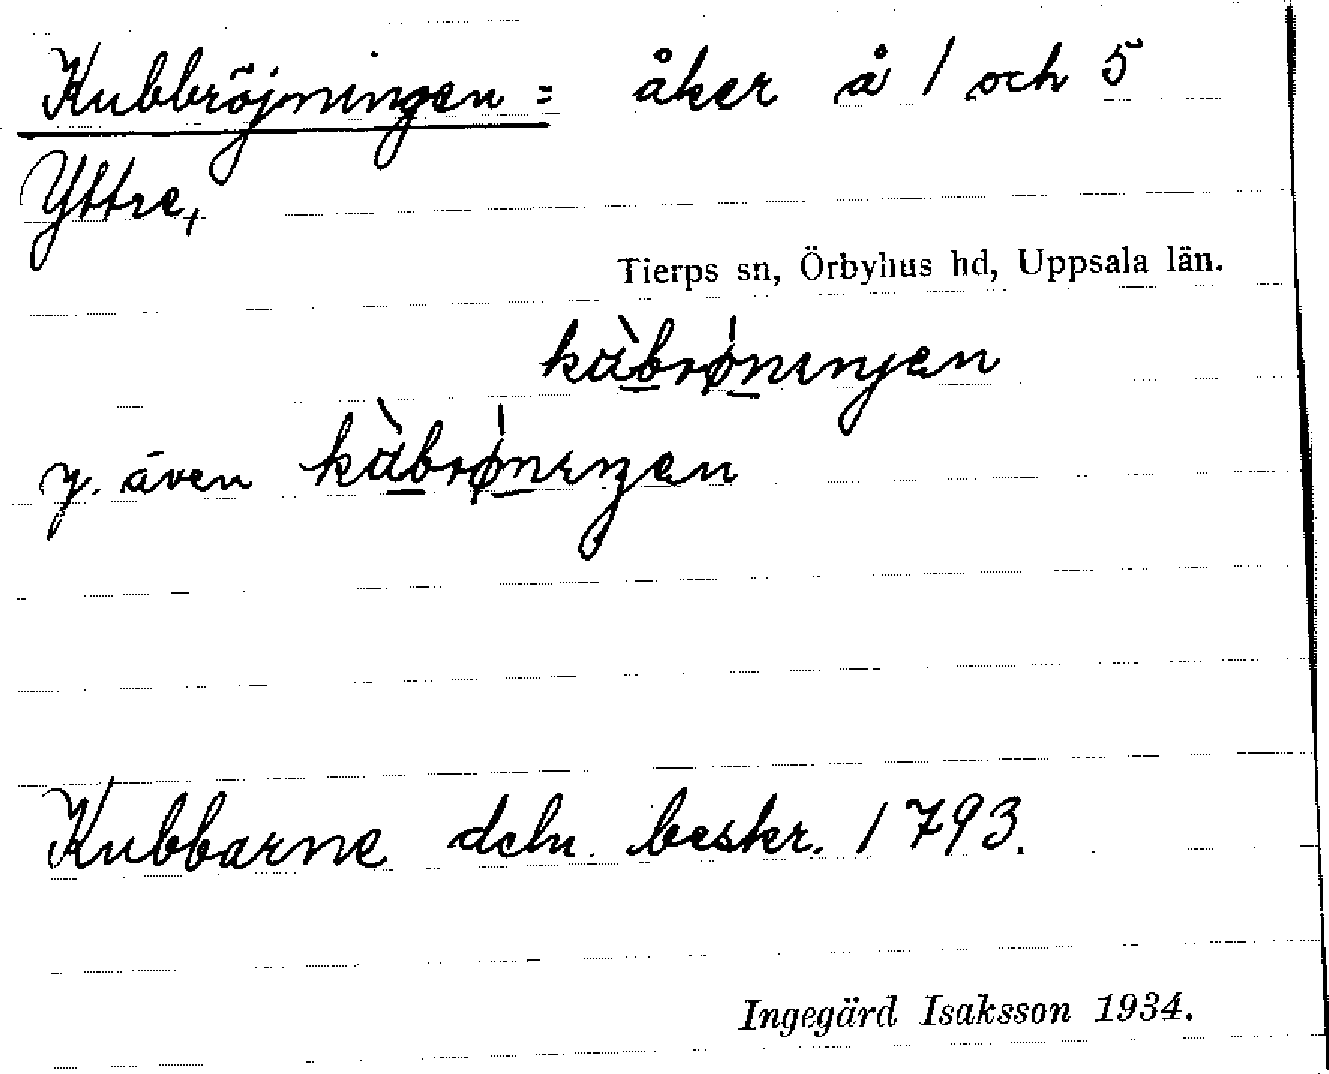 Kubbröjningen = åker å 1 och 5
Yttre,
Tierps sn, Örbyhus hd, Uppsala län.
kàbrø̀nıŋen
y. även kàbrø̀nıŋen
Kubbarne deln. beskr. 1793.
Ingegärd Isaksson 1934.